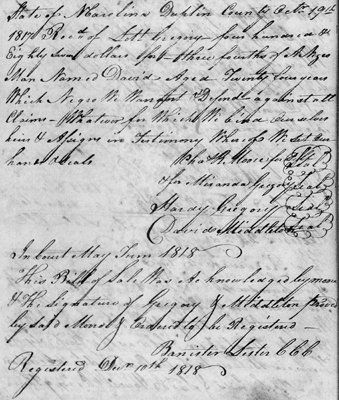 State of N Carolina Duplin County Octr 19th
1817 Recd of Lott Gregory four hundred &
Eighty dollars for three fourths of A Negro
Man Named David Aged Twenty four years
Which Negro We Warrant & Defend against all
Claims Whatever for Which We bind Our selves
heirs & Assigns in Testimony Whereof We Set Our
hands & Seals
for Miranda Gregory Seal
Hardy Gregory Seal
David Middleton Seal
In Court May Term 1818
This Bill of Sale Was Acknowledged by
& The Signature of Gregory & Middleton proved
by said & Ordered to be Registered —
Banister Lester CCC
Registered 10th 1818